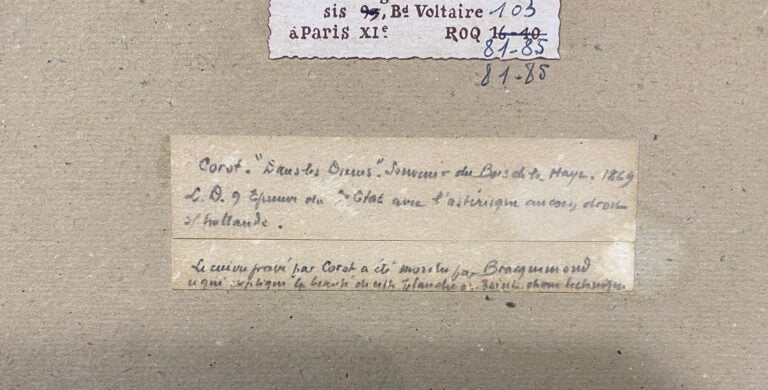 sis 95, Bd Voltaire 103
à Paris XIe ROQ 16-40
81-85
81-85
Corot. "Dans les Dunes". Souvenir du Bois de la Haye. 1869
L. D. 9 Epreuve du Etat avec l'astérisque au coin droit
s/ hollande.
Le cuivre gravé par Corot a été mordu par Bracquemond
la beauté de cette planche